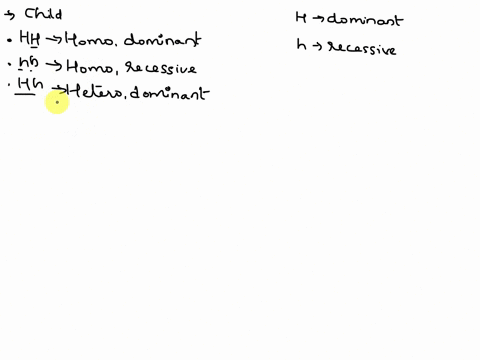 → Child
• HH → Homo, dominant
• hh → Homo, recessive
• Hh → Hetero, dominant
H → dominant
h → recessive